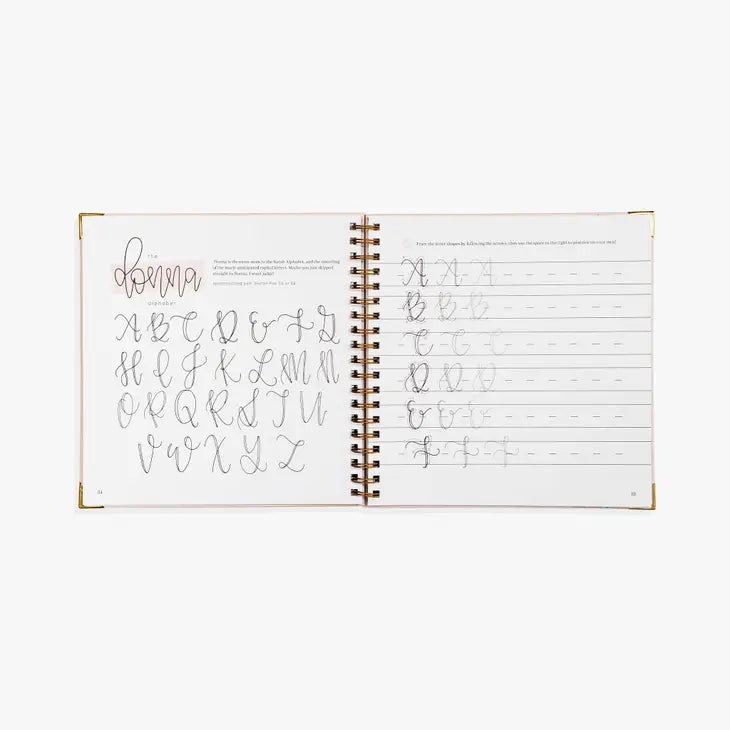 the
donna
alphabet
Donna is the sister mom to the Sarah Alphabet, and the unveiling
of the much-anticipated capital letters. Maybe you just skipped
straight to Donna. I won't judge!
A B C D E F G
H I J K L M N
O P Q R S T U
V W X Y Z
54
Trace the letter shapes by following the arrows, then use the space to the right to practice on your own!
A A A
B B B
C C C
D D D
E E E
F F F
55